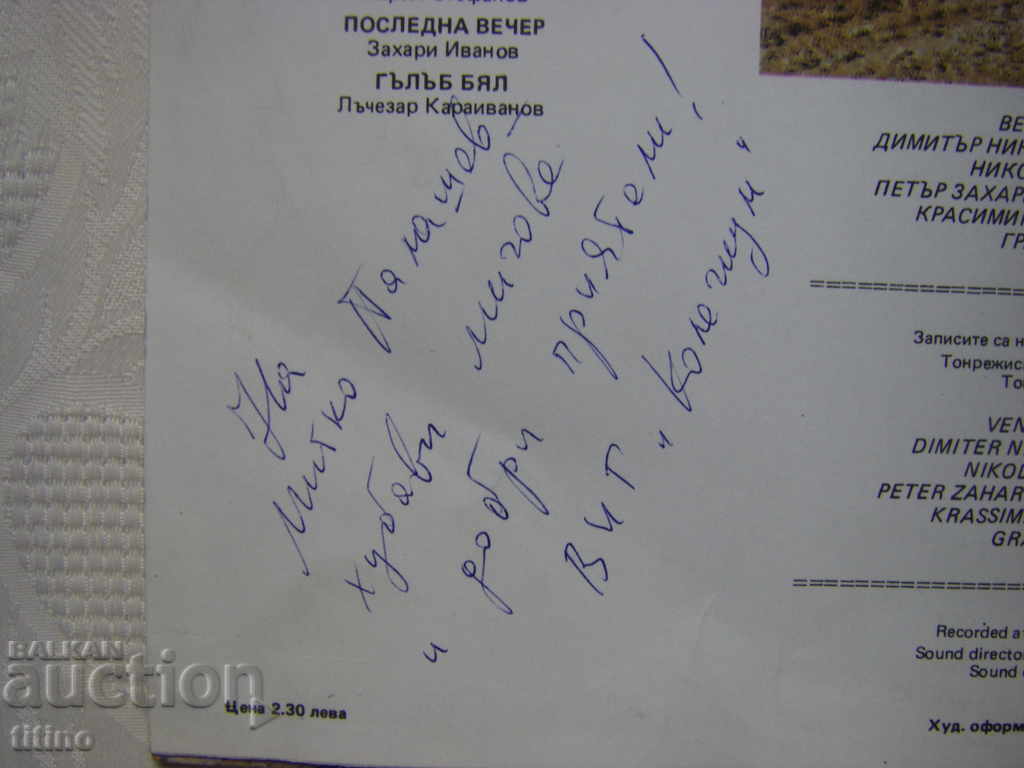 ПОСЛЕДНА ВЕЧЕР
Захари Иванов
ГЪЛЪБ БЯЛ
Лъчезар Караиванов
На
Митко
хубави мигове
и добри приятели!
ВИГ „Колегиум"
ВЕ
ДИМИТЪР НИК
НИКО
ПЕТЪР ЗАХАР
КРАСИМИ
ГР
Записите са н
Тонрежис
То
VEN
DIMITER N
NIKOL
PETER ZAHAR
KRASSIM
GRA
Recorded a
Sound director
Sound
Худ. оформ
Цена 2.30 лева
BALKAN
auction
titino